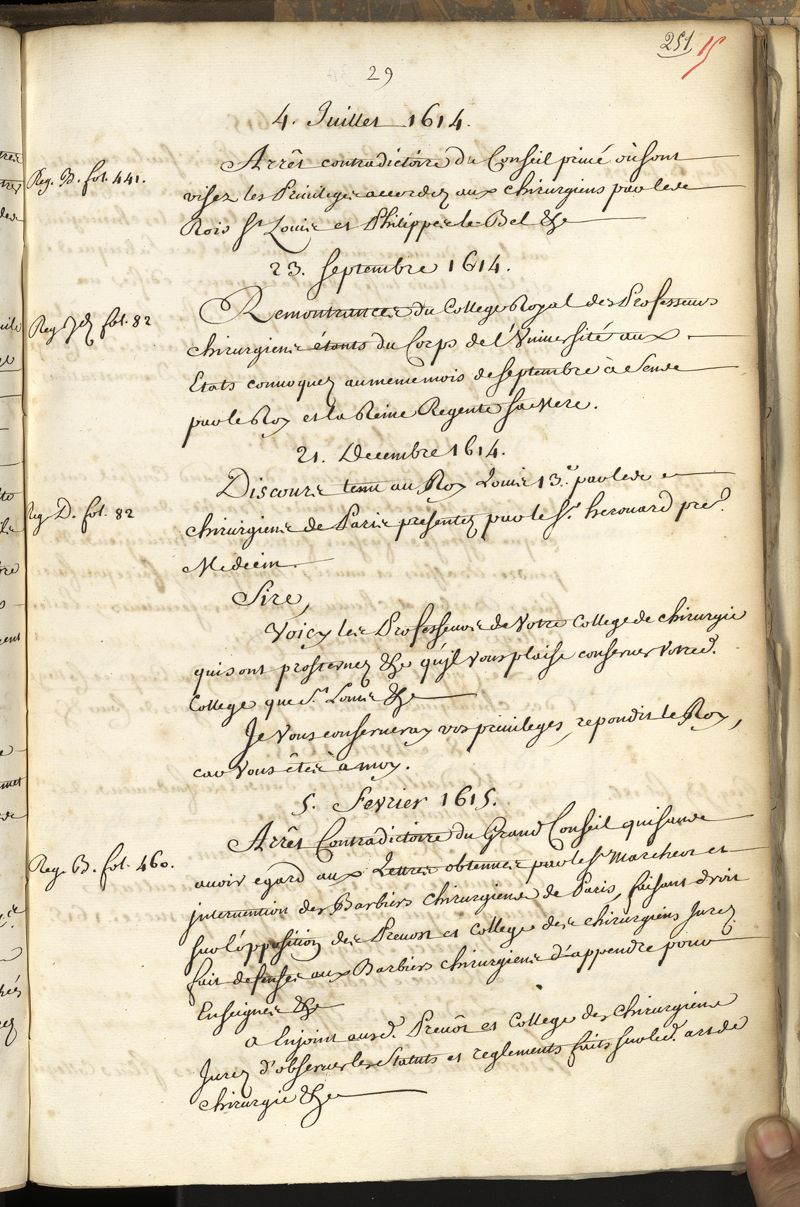 29
251
15
4. Juillet 1614.
Reg. B. fol. 441.
Arrêt contradictoire du Conseil privé où sont
visez les Privileges accordez aux chirurgiens par les
Rois St Louis et Philippe le Bel &c
23. septembre 1614.
Reg fol. 82
Remontrances du College Royal des Professeurs
chirurgiens étants du Corps de l'Université aux
Etats convoquez au meme mois de septembre à Sens
par le Roy et la Reine Regente sa Mere.
21. Decembre 1614.
Reg. D. fol. 82
Discours tenu au Roy Louis 13.e par les
chirurgiens de Paris presentez par le Sr. herouard per.
Medecin.
Sire,
Voicy les Professeurs de Votre College de chirurgie
qui sont prosternez &c qu'jl vous plaise conserver votre d.
College que St. Louis &c
Je Vous conserveray vos privileges, repondit le Roy,
car Vous êtes à moy.
5. Fevrier 1615.
Reg. B. fol. 460.
Arrêt Contradictoire du Grand Conseil qui sans
avoir egard aux Lettres obtenues par le Sr Marchant et
jntervention des Barbiers chirurgiens de Paris, faisant droit
sur l'opposition des Prevost et College des chirurgiens Jurez
fait defenses aux Barbiers chirurgiens d'appendre pour
Enseignes &c
a Enjoint ausd. Prevôt et College des Chirurgiens
Jurez d'observer les Statuts et reglements faits sur led. art de
chirurgie &c